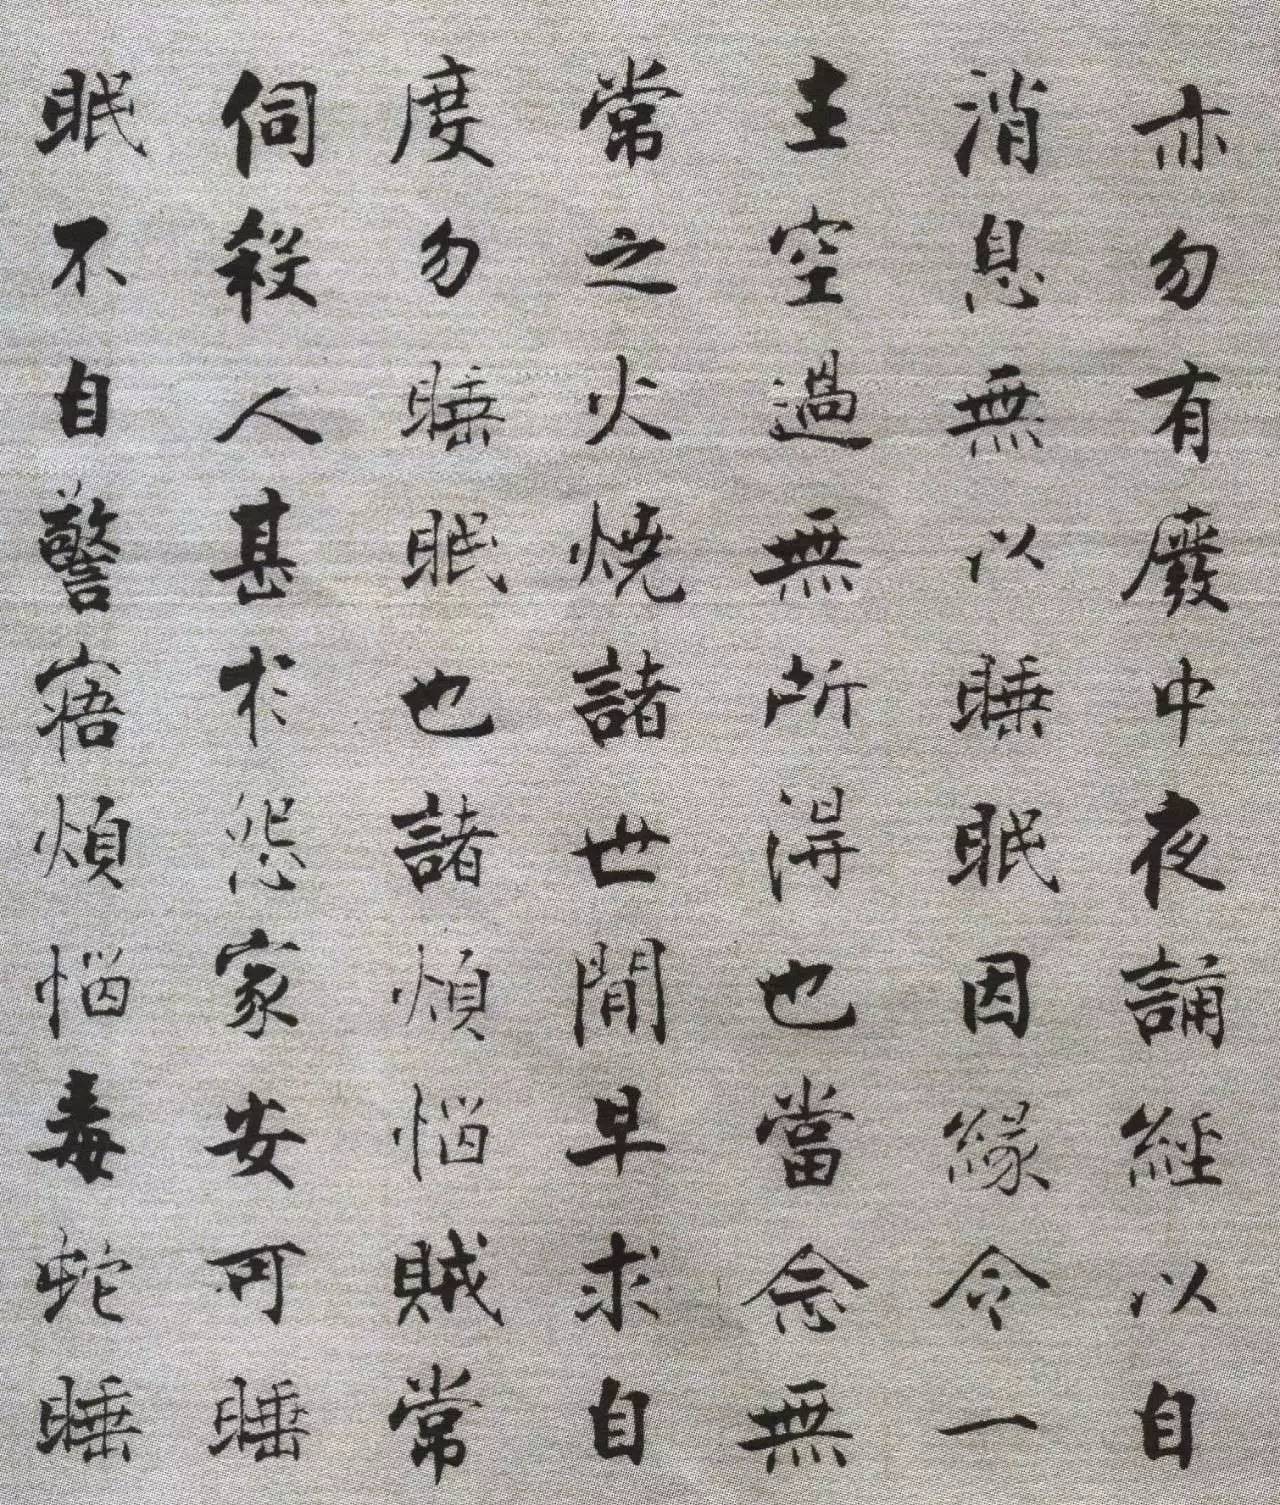 亦勿有廢中夜誦經以自
消息無以睡眠因緣令一
主空過無所得也當念無
常之火燒諸世間早求自
度勿睡眠也諸煩惱賊常
伺殺人甚於怨家安可睡
眠不自警寤煩惱毒蛇睡